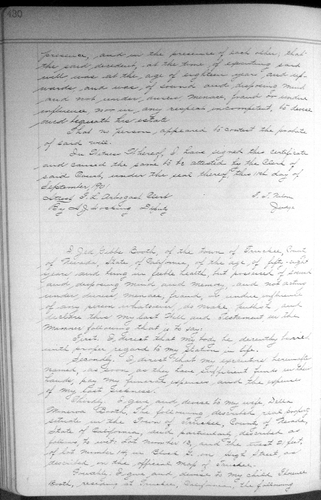 430
presence, and in the presence of each other, that
the said decedent, at the time of executing said
will was at the age of eighteen years and up-
wards and was of sound and disposing mind
and not under duress, menace, fraud or undue
influence nor in any respect incompetent, to devise
and bequeath his estate.
That no person appeared to contest the probate
of said will.
In Witness Thereof, I have signed this certificate
and caused the same to be attested by the Clerk of
said Court, under the seal thereof, this day of
September, 190
Attest Clerk
By Deputy
Judge
I Booth, of the town of Truckee, County
of Nevada, State of California, of the age of fifty-eight
years and being in feeble health, but possessed of sound
and disposing mind and memory, and not acting
under duress, menace, fraud, or undue influence
of any person whatever, do make, publish and
declare this my last Will and Testament in the
manner following that is to say:
First. I direct that my body be decently buried
with proper regard to my station in life.
Secondly. I direct that my executors hereinafter
named, as soon as they have sufficient funds in their
hands, pay my funeral expenses, and the expenses
of my last sickness.
Thirdly. I give and devise to my wife
Minerva Booth, the following described real property
situate in the Town of Truckee, County of Nevada,
State of California, and particularly described as
follows, to wit: Lot number 13, and the West 2 feet,
of lot number 14, in Block on High Street, as
described on the official map of Truckee.
Fourth. I give and devise to my child
Booth, residing at Truckee, California, the following